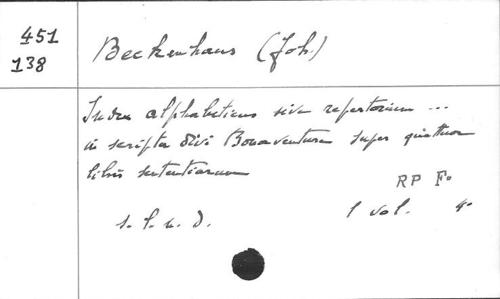 451
138
Beckenhaus (Joh.)
Index alphabeticus sive repertorium ...
in scripta divi Bonaventurae super quattuor
libris sententiarum
RP F.
s. l. n. d.
1 vol. 4.